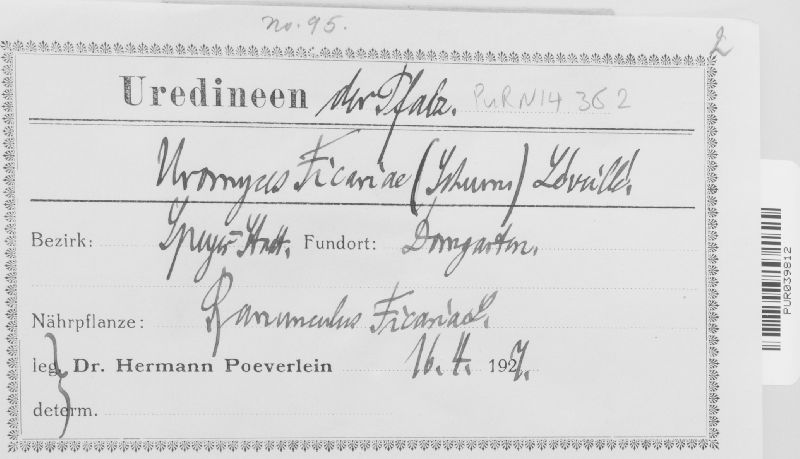 no. 95.
2
Uredineen der Pfalz. PUR N14 362
Uromyces Ficariae (Schum.) Léveillé.
Bezirk: Speyer-Stadt. Fundort: Domgarten.
Nährpflanze: Ranunculus Ficaria L.
leg. Dr. Hermann Poeverlein 16.4. 1927.
determ.
PUR039812